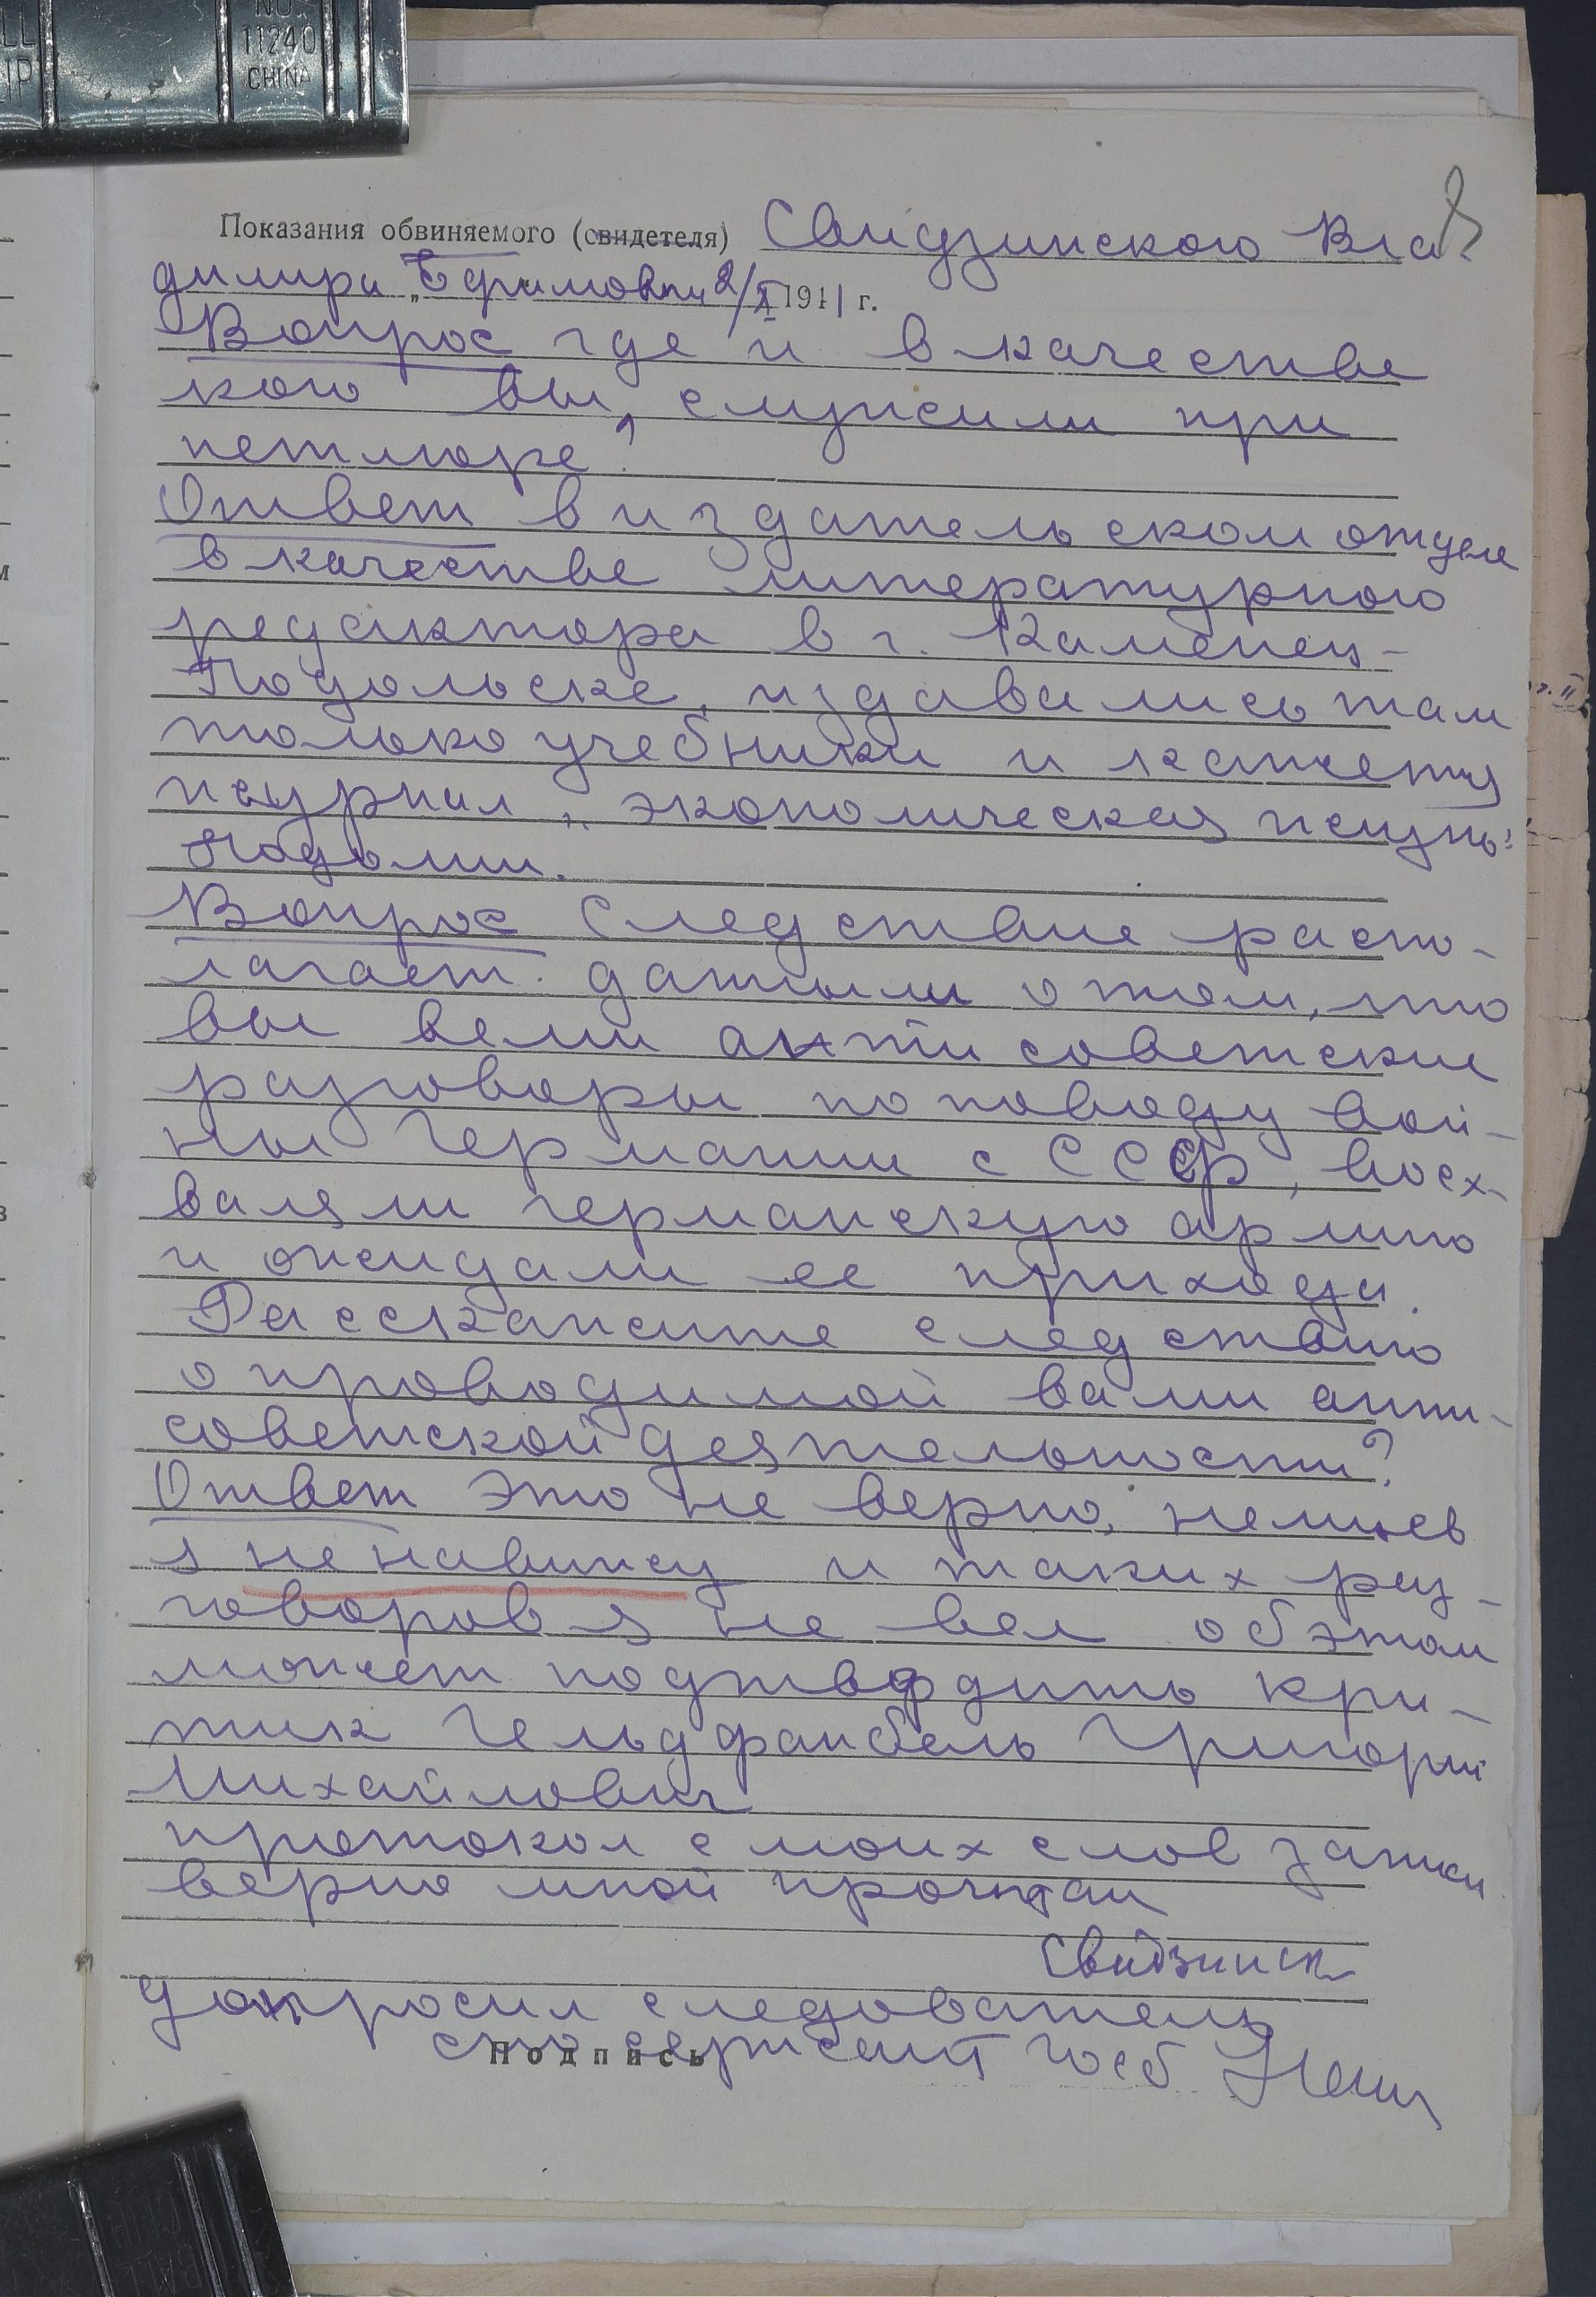 LL NO. 11240
IP CHINA
8
Показания обвиняемого (свидетеля) Свидзинского Вла
димира Ефимовича 2/X 1941 г.
Вопрос где и в качестве
кого вы, служили при
петлюре?
Ответ в издательском отделе
в качестве литературного
редактора в г. Каменец-
Подольске, издавались там
только учебники и кажется
журнал „экономическая жизнь"
Подолии.
Вопрос Следствие распо-
лагает данными о том, что
вы вели антисоветские
разговоры по поводу вой-
ны Германии с СССР, восх-
валяли германскую армию
и ожидали ее прихода.
Расскажите следствию
о проводимой вами анти-
советской деятельности?
Ответ Это не верно, немцев
я ненавижу и таких раз-
говоров я не вел об этом
может подтвердить кри-
тик Гельдфанбель Григорий
Михайлович
протокол с моих слов записан
верно мной прочитан
Свидзинск
допросил следователь
сержант госб
Подпись